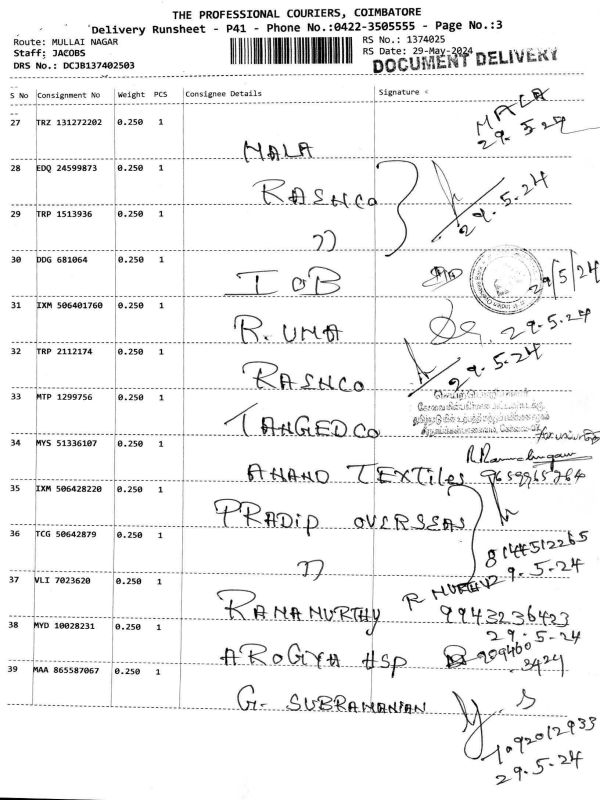 THE PROFESSIONAL COURIERS, COIMBATORE
Delivery Runsheet - P41 - Phone No.:0422-3505555 - Page No.:3
Route: MULLAI NAGAR
RS No.: 1374025
Staff: JACOBS
RS Date: 29-May-2024
DRS No.: DCJB137402503
DOCUMENT DELIVERY
S No Consignment No Weight PCS Consignee Details Signature
27 TRZ 131272202 0.250 1 MALA MALA
29.5.24
28 EDQ 24599873 0.250 1 RASHCO
29.5.24
29 TRP 1513936 0.250 1 "
30 DDG 681064 0.250 1 IOB 29/5/24
31 IXM 506401760 0.250 1 R. UMA 29.5.24
32 TRP 2112174 0.250 1 RASHCO 29.5.24
33 MTP 1299756 0.250 1 TANGEDCO
34 MYS 51336107 0.250 1 ANAND TEXTILES 9659965264
35 IXM 506428220 0.250 1 PRADIP OVERSEAS
36 TCG 50642879 0.250 1 " 8144512265
29.5.24
37 VLI 7023620 0.250 1 RAMAMURTHY R MURTHY
9943236423
29.5.24
38 MYD 10028231 0.250 1 AROGIYA HSP 909460
3424
39 MAA 865587067 0.250 1 G. SUBRAMANIAN
29.5.24